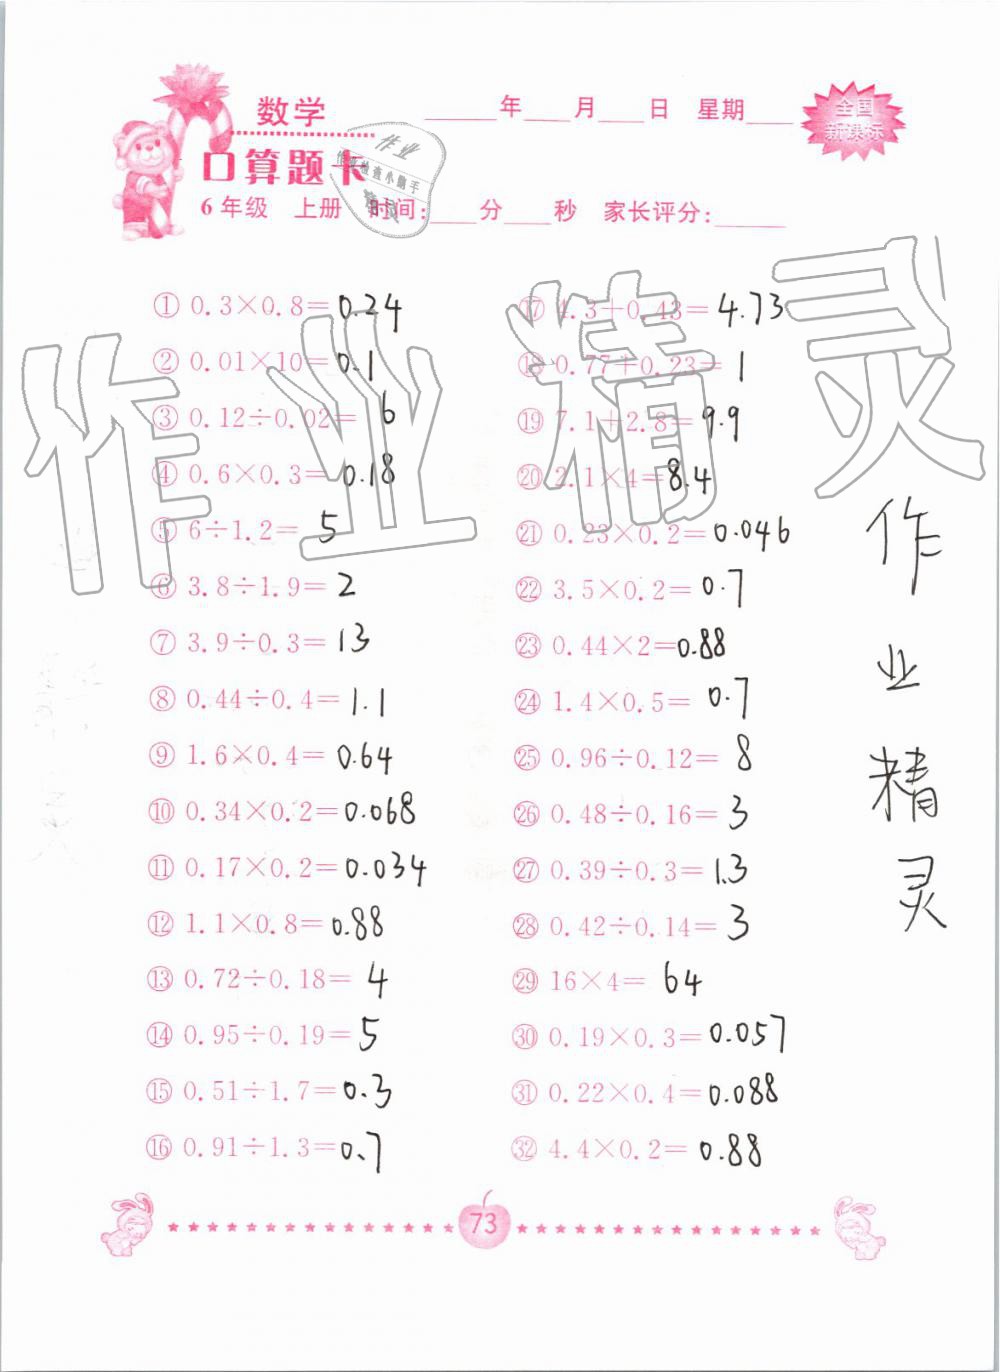 数学
年 月 日 星期
全国
新课标
口算题卡
作业
作业检查小助手
6年级 上册 时间: 分 秒 家长评分:
① 0.3×0.8=0.24
② 0.01×10=0.1
③ 0.12÷0.02=6
④ 0.6×0.3=0.18
⑤ 6÷1.2=5
⑥ 3.8÷1.9=2
⑦ 3.9÷0.3=13
⑧ 0.44÷0.4=1.1
⑨ 1.6×0.4=0.64
⑩ 0.34×0.2=0.068
⑪ 0.17×0.2=0.034
⑫ 1.1×0.8=0.88
⑬ 0.72÷0.18=4
⑭ 0.95÷0.19=5
⑮ 0.51÷1.7=0.3
⑯ 0.91÷1.3=0.7
⑰ 4.3+0.43=4.73
⑱ 0.77+0.23=1
⑲ 7.1+2.8=9.9
⑳ 2.1×4=8.4
㉑ 0.23×0.2=0.046
㉒ 3.5×0.2=0.7
㉓ 0.44×2=0.88
㉔ 1.4×0.5=0.7
㉕ 0.96÷0.12=8
㉖ 0.48÷0.16=3
㉗ 0.39÷0.3=1.3
㉘ 0.42÷0.14=3
㉙ 16×4=64
㉚ 0.19×0.3=0.057
㉛ 0.22×0.4=0.088
㉜ 4.4×0.2=0.88
作业精灵
作
业
精
灵
73